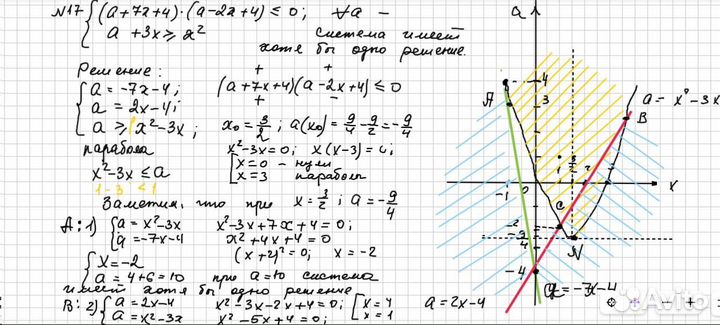 N17 { (a+7x+4)·(a-2x+4) ≤ 0; ∀a –
a + 3x ≥ x² система имеет
хотя бы одно решение.
Решение:
{ a = -7x-4; (a+7x+4)(a-2x+4) ≤ 0
a = 2x-4;
a ≥ x²-3x; x₀ = 3/2; a(x₀) = 9/4 - 9/2 = -9/4
парабола x²-3x=0; x(x-3)=0;
x²-3x ≤ a [ x=0 – нули
x=3 параболы
1-3 ≤ 1
Заметим, что при x = 3/2; a = -9/4
A: 1) { a = x²-3x x²-3x+7x+4=0;
a = -7x-4 x²+4x+4=0
{ x=-2 (x+2)²=0; x=-2
a = 4+6=10 при a=10 система
имеет хотя бы одно решение
B: 2) { a = 2x-4 x²-3x-2x+4=0; [ x=4
a = x²-3x x²-5x+4=0; x=1
a
4
3
A
a = x²-3x
B
-1 0 1 3/2 2 x
C
-2
-9/4
N
-4
a=2x-4
a=-7x-4
Avito